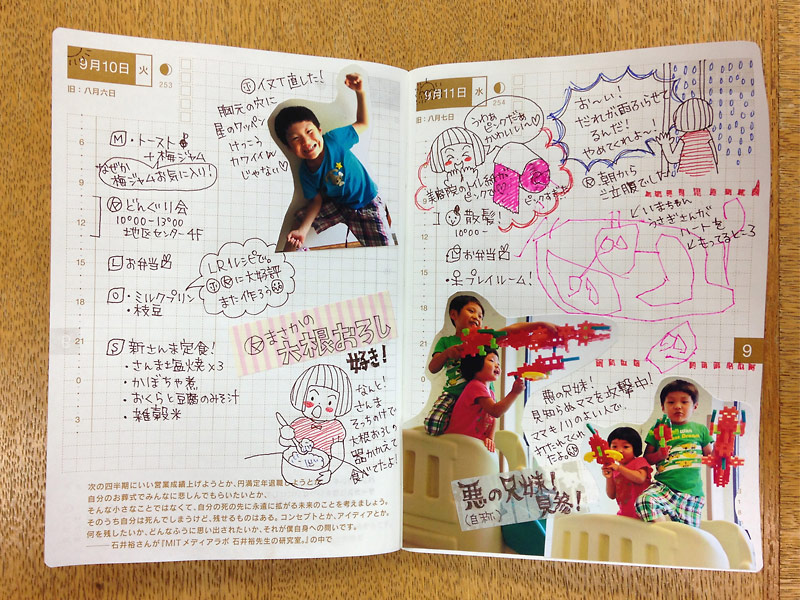 9月10日 火
253
旧：八月六日
イヌT直した！
胸元の穴に
星のワッペン
けっこう
カワイイん
じゃない♡
6
9
12
15
18
21
0
3
M・トースト
＋梅ジャム
なぜか
梅ジャムお気に入り！
どんぐり会
10:00-13:00
地区センター4F
L お弁当
O・ミルクプリン
・枝豆
また作ろう
まさかの
大根おろし
好き！
S 新さんま定食！
・さんま塩焼×3
・かぼちゃ煮
・おくらと豆腐のみそ汁
・雑穀米
なんと！
さんま
そっちのけで
大根おろしの
器かかえて
食べてたよ！
次の四半期にいい営業成績上げようとか、円満定年退職しようとか
自分のお葬式でみんなに悲しんでもらいたいとか、
そんな小さなことではなくて、自分の死の先に永遠に拡がる未来のことを考えましょう。
そのうち自分は死んでしまうけど、残せるものはある。コンセプトとか、アイディアとか。
何を残したいか、どんなふうに思い出されたいか、それが僕自身への問いです。
――石井裕さんが『MITメディアラボ 石井裕先生の研究室。』の中で
9月11日 水
254
旧：八月七日
うわぁ
ピンクだぁ
かわいい〜♡
美容院のトイレ紙が
ピンクで
ピンクずき
お〜い！
だれが雨ふらせて
るんだ！
やめてくれよ〜！
朝から
ご立腹でした
散髪！
10:00-
お弁当
・プレイルーム！
いまちゃん
うさぎさんが
ハートを
もってるところ
6
9
12
15
18
21
0
3
9
悪の兄妹！
見知らぬママを攻撃中！
ママもノリのよい人で、
打たれてくれ
たよ
悪の兄妹！
見参！
(自称)